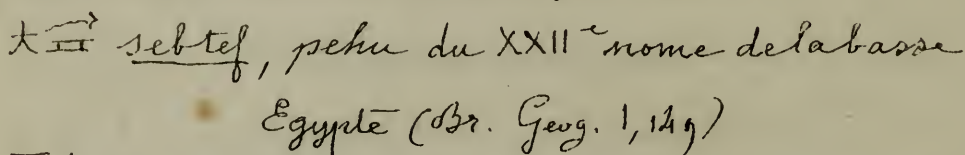 sebtef, pehu du XXIIe nome de la basse
Egypte (Br. Geog. 1, 149)